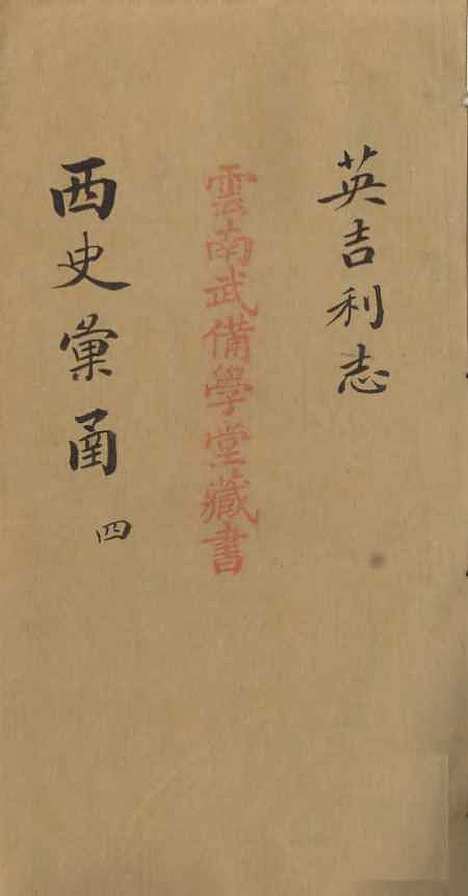 英吉利志
雲南武備學堂藏書
西史彙函
四